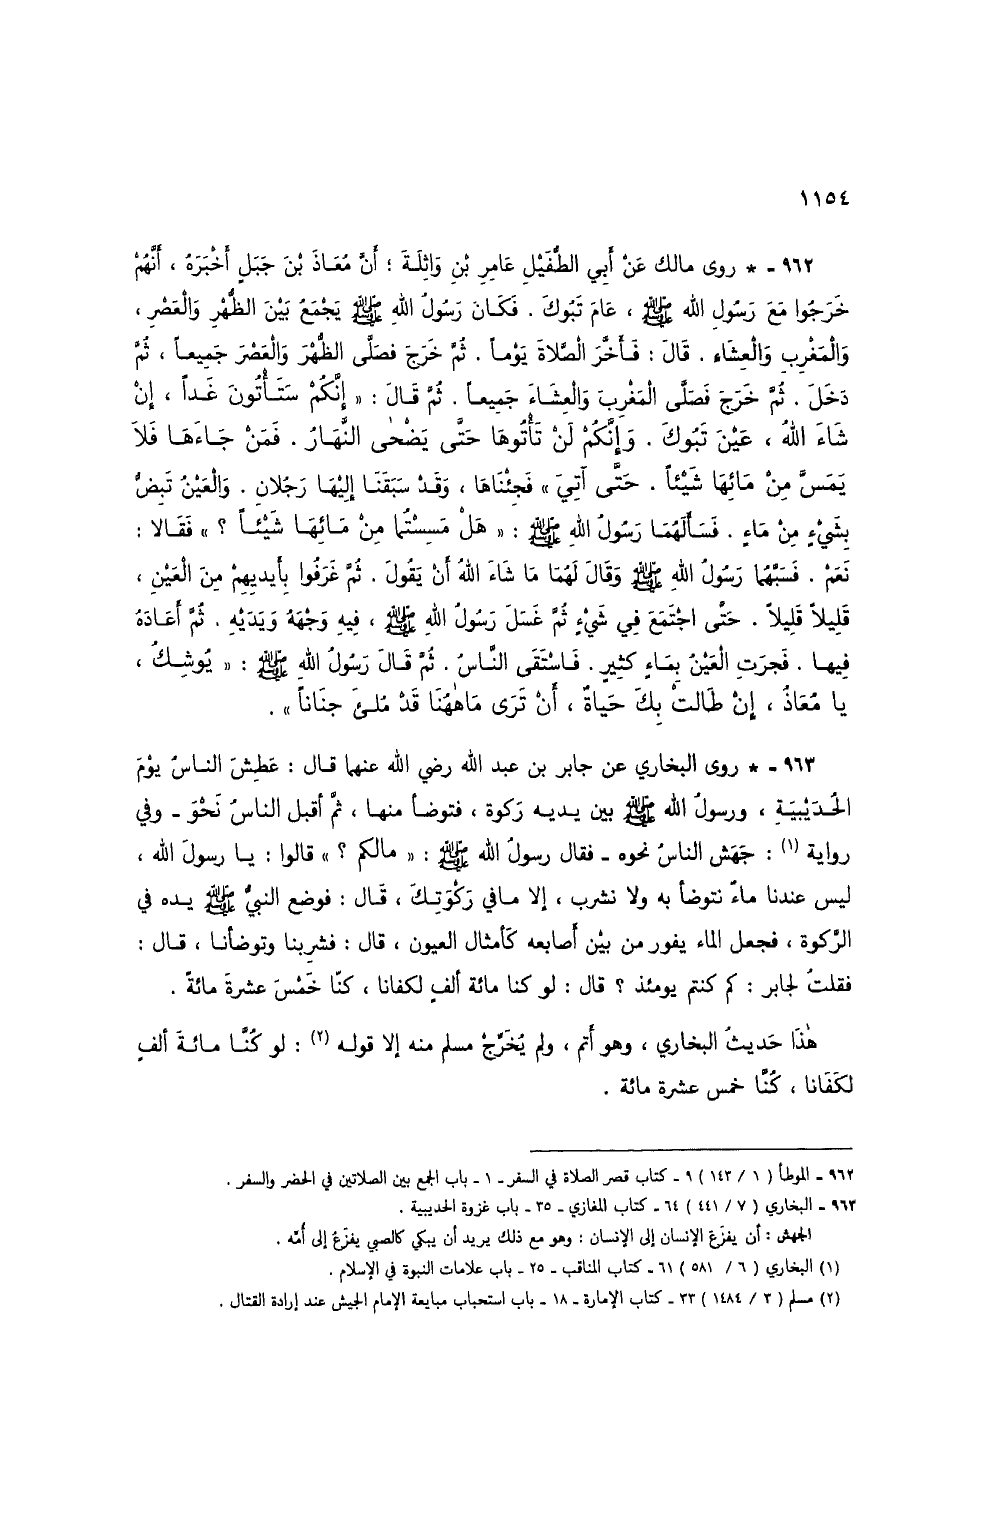 ١١٥٤
٩٦٢ - * روى مالك عَنْ أَبِي الطُّفَيْلِ عَامِرِ بْنِ وَاثِلَةَ ؛ أَنَّ مُعَاذَ بْنَ جَبَلٍ أَخْبَرَهُ ، أَنَّهُمْ
خَرَجُوا مَعَ رَسُولِ اللهِ ﷺ ، عَامَ تَبُوكَ . فَكَانَ رَسُولُ اللهِ ﷺ يَجْمَعُ بَيْنَ الظُّهْرِ وَالْعَصْرِ ،
وَالْمَغْرِبِ وَالْعِشَاءِ . قَالَ : فَأَخَّرَ الصَّلاَةَ يَوْماً . ثُمَّ خَرَجَ فصَلَّى الظُّهْرَ وَالْعَصْرَ جَمِيعاً ، ثُمَّ
دَخَلَ . ثُمَّ خَرَجَ فَصَلَّى الْمَغْرِبَ وَالْعِشَاءَ جَمِيعاً . ثُمَّ قَالَ : « إِنَّكُمْ سَتَأْتُونَ غَداً ، إِنْ
شَاءَ اللهُ ، عَيْنَ تَبُوكَ . وَإِنَّكُمْ لَنْ تَأْتُوهَا حَتَّى يَضْحٰى النَّهَارُ . فَمَنْ جَاءَهَا فَلاَ
يَمَسَّ مِنْ مَائِهَا شَيْئاً . حَتَّى آتِيَ » فَجِئْنَاهَا ، وَقَدْ سَبَقَنَا إِلَيْهَا رَجُلانِ . وَالْعَيْنُ تَبِضُّ
بِشَيْءٍ مِنْ مَاءٍ . فَسَأَلَهُمَا رَسُولُ اللهِ ﷺ : « هَلْ مَسِسْتُما مِنْ مَائِهَا شَيْئاً ؟ » فَقَالا :
نَعَمْ . فَسَبَّهُما رَسُولُ اللهِ ﷺ وَقَالَ لَهُمَا مَا شَاءَ اللهُ أَنْ يَقُولَ . ثُمَّ غَرَفُوا بِأَيدِيهِمْ مِنَ الْعَيْنِ ،
قَلِيلاً قَلِيلاً . حَتَّى اجْتَمَعَ فِي شَيْءٍ ثُمَّ غَسَلَ رَسُولُ اللهِ ﷺ ، فِيهِ وَجْهَهُ وَيَدَيْهِ . ثُمَّ أَعَادَهُ
فِيها . فَجرَتِ الْعَيْنُ بِمَاءٍ كثِيرٍ . فَاسْتَقَى النَّاسُ . ثُمَّ قَالَ رَسُولُ اللهِ ﷺ : « يُوشِكُ ،
يا مُعَاذُ ، إِنْ طَالَتْ بِكَ حَياةٌ ، أَنْ تَرَى مَاهٰهُنَا قَدْ مُلئَ جِنَاناً » .
٩٦٣ - * روى البخاري عن جابر بن عبد الله رضي الله عنهما قال : عَطِشَ الناسُ يوْمَ
الحُدَيْبِيَةِ ، ورسولُ الله ﷺ بين يديه رَكوة ، فتوضأ منها ، ثمَّ أقبل الناسُ نَحْوَ - وفي
رواية (١) : جَهَش الناسُ نحوه - فقال رسولُ الله ﷺ : « مالكم ؟ » قالوا : يا رسولَ الله ،
ليس عندنا ماءٌ نتوضأ به ولا نشرب ، إلا مافي رَكْوَتِكَ ، قَال : فوضع النبيُّ ﷺ يده في
الرَّكوة ، فجعل الماء يفور من بيْن أَصابعه كَأمثال العيون ، قال : فشربنا وتوضأنا ، قال :
فقلتُ لجابر : كم كنتم يومئذ ؟ قال : لو كنا مائة ألفٍ لكفانا ، كنّا خَمْسَ عشرةَ مائةً .
هٰذَا حَديثُ البخاري ، وهو أتم ، ولم يُخَرِّجْ مسلم منه إلا قوله (٢) : لو كُنَّا مائةَ ألفٍ
لكَفَانا ، كُنَّا خمس عشرة مائة .
٩٦٢ - الموطأ ( ١ / ١٤٣ ) ٩ - كتاب قصر الصلاة في السفر - ١ - باب الجمع بين الصلاتين في الحضر والسفر .
٩٦٣ - البخاري ( ٧ / ٤٤١ ) ٦٤ - كتاب المغازي - ٣٥ - باب غزوة الحديبية .
الجهش : أن يفزَع الإنسان إلى الإنسان : وهو مع ذلك يريد أن يبكي كالصبي يفزَعُ إلى أُمّه .
(١) البخاري ( ٦ / ٥٨١ ) ٦١ - كتاب المناقب - ٢٥ - باب علامات النبوة في الإسلام .
(٢) مسلم ( ٣ / ١٤٨٤ ) ٣٣ - كتاب الإمارة - ١٨ - باب استحباب مبايعة الإمام الجيش عند إرادة القتال .